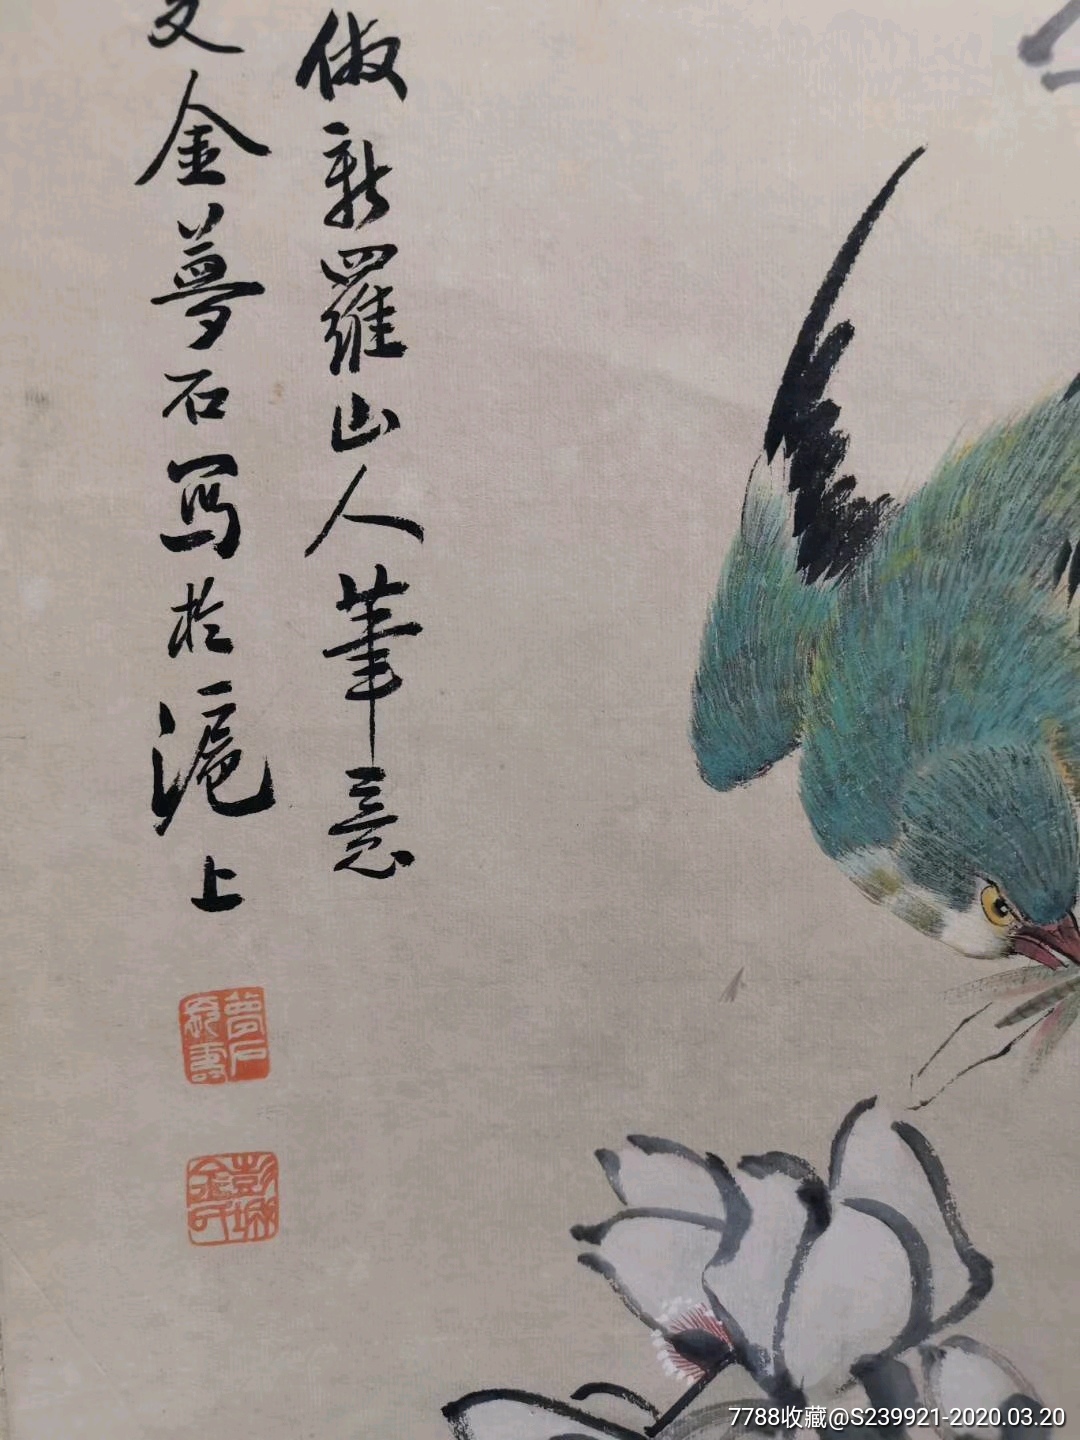 倣新羅山人筆意
金夢石寫於滬上
夢石
彭城
金氏
7788收藏@S239921-2020.03.20